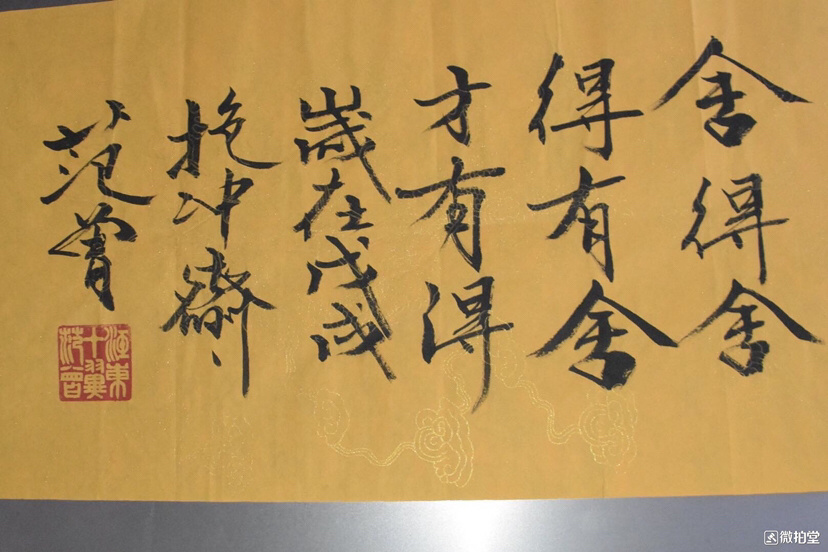 舍得舍
得有舍
才有得
歲在戊戌
抱冲齋
范曾
江東
十翼
范曾
微拍堂